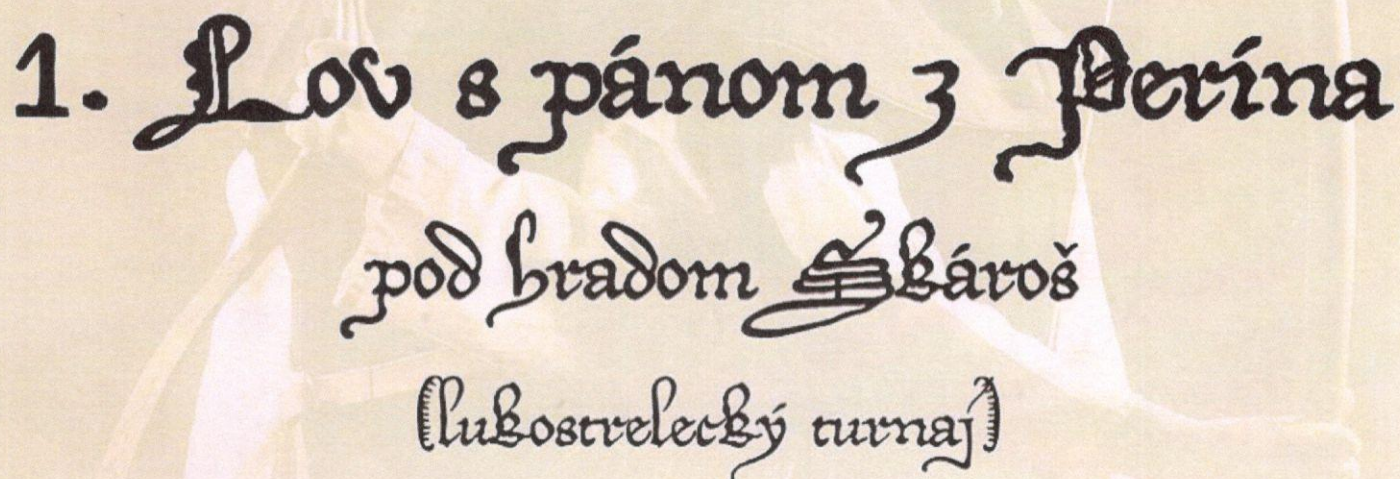 1. Lov s pánom z Perína
pod hradom Škároš
(lukostrelecký turnaj)